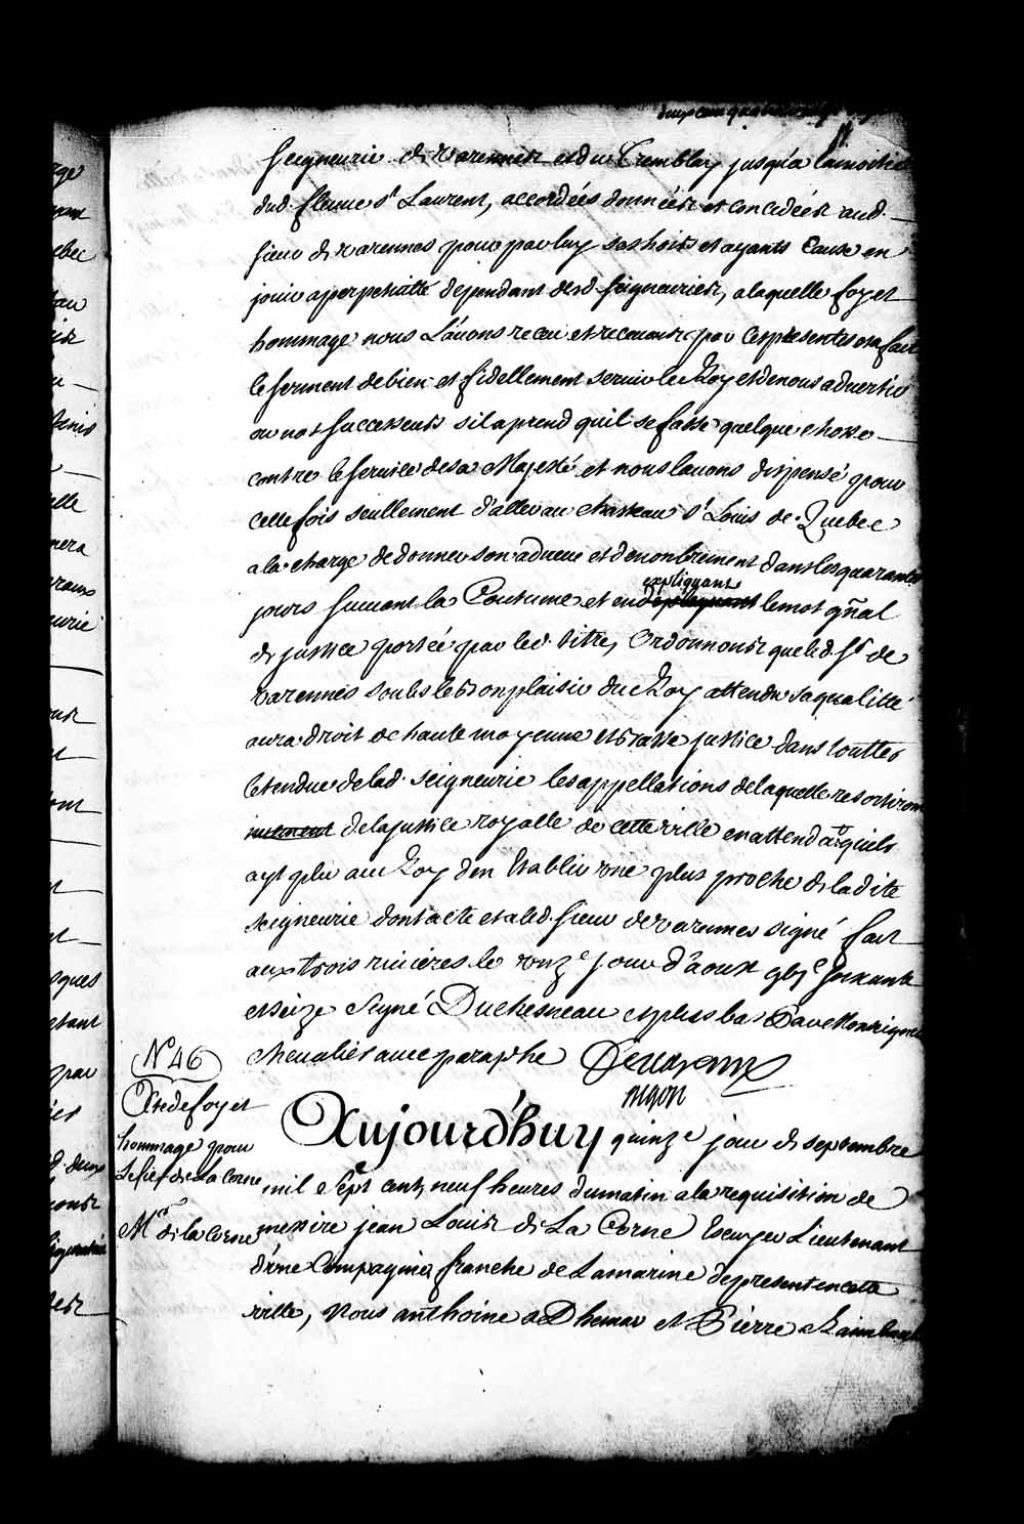 seigneurie de Varennes et du Tremblay jusqu'a lamoitié
dud. fleuve St Laurent, accordées données et concedées aud.
sieur de varennes pour par luy ses hoirs et ayants Cause en
jouir a perpetuitté dependant desd. seigneuries, a laquelle foy et
hommage nous L'auons receu et receuons par ces presentes et a fait
le serment de bien et fidellement seruir le Roy et de nous aduertir
ou nos successeurs s'il aprend qu'il se fasse quelque chose
contre le seruice de sa Majesté et nous lauons dispensé pour
cette fois seullement d'aller au chasteau St Louis de Quebec
a la charge de donner son adueu et denonbrement dans les quarante
jours suiuant la Coutume et en expliquant le mot gñal
de justice portée par led. titre, Ordonnons que led. Sr de
varennes soubs le bon plaisir du Roy attendu sa qualitté
aura droit de haute moyenne et basse justice dans touttes
letendue de lad. seigneurie les appellations de laquelle resortiront
de la justice royalle de cette ville en attendāt quils
ayt plu au Roy den Etablir une plus proche de la dite
seigneurie dont acte et a led. sieur de varennes signé fait
aux trois riuieres le unze jour d'aoust gbjc soixante
et seize Signé Duchesneau et plus bas Par Monseigneur
cheualier auec paraphe Devarennes
N° 46
Acte de foy et
hommage pour
Le fief de La Corne
Mr de la Corne
Aujourd'huy quinze jour de septembre
mil Sept cent, neuf heures du matin a la requisition de
messire jean Louis de La Corne Escuyer Lieutenant
d'une Compagnie franche de Lamarine de present en cette
ville, Nous anthoine aDhemar et Pierre Raimbault